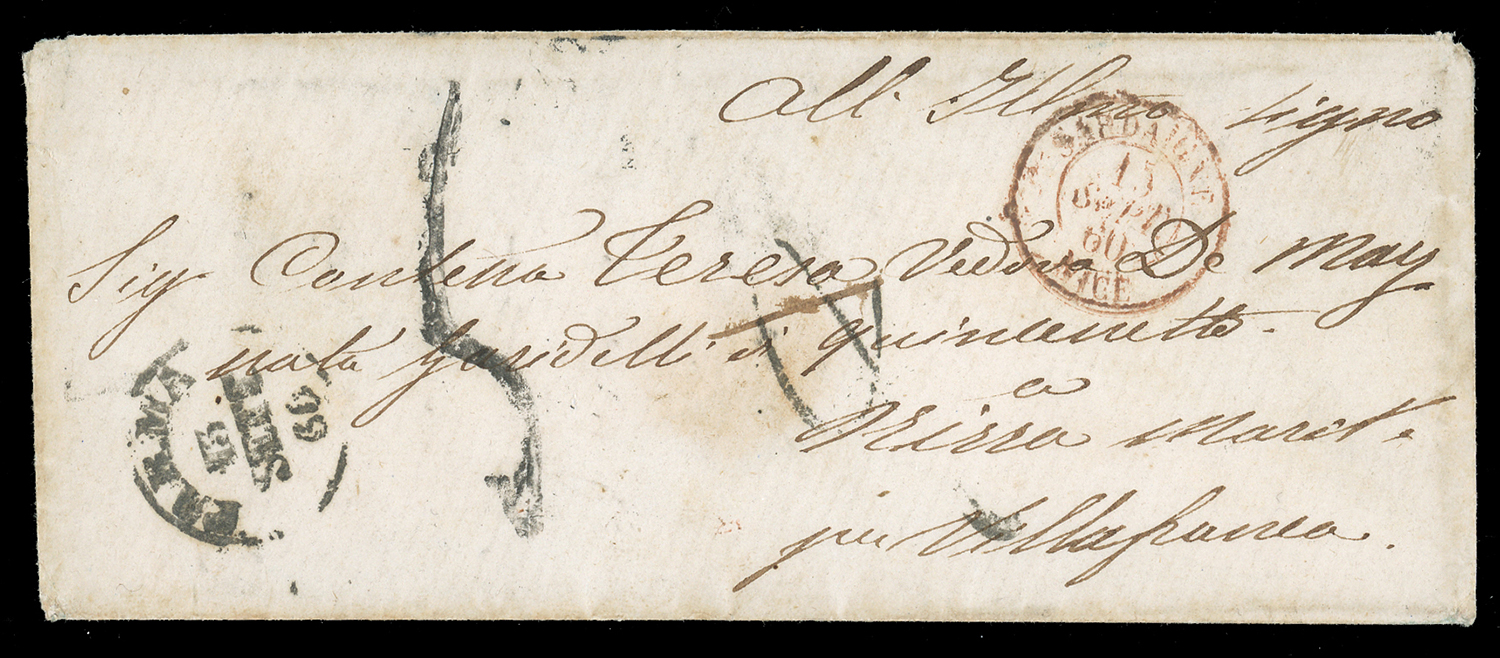 All' Illmo signo
Sig Contessa Teresa Vedova De May
nata Garidelli di quincenetto.
a
Nizza Maritt.
per Villafranca.
SARDAIGNE
15
SEPT
60
NICE
PARMA
13
SETTE
60
5